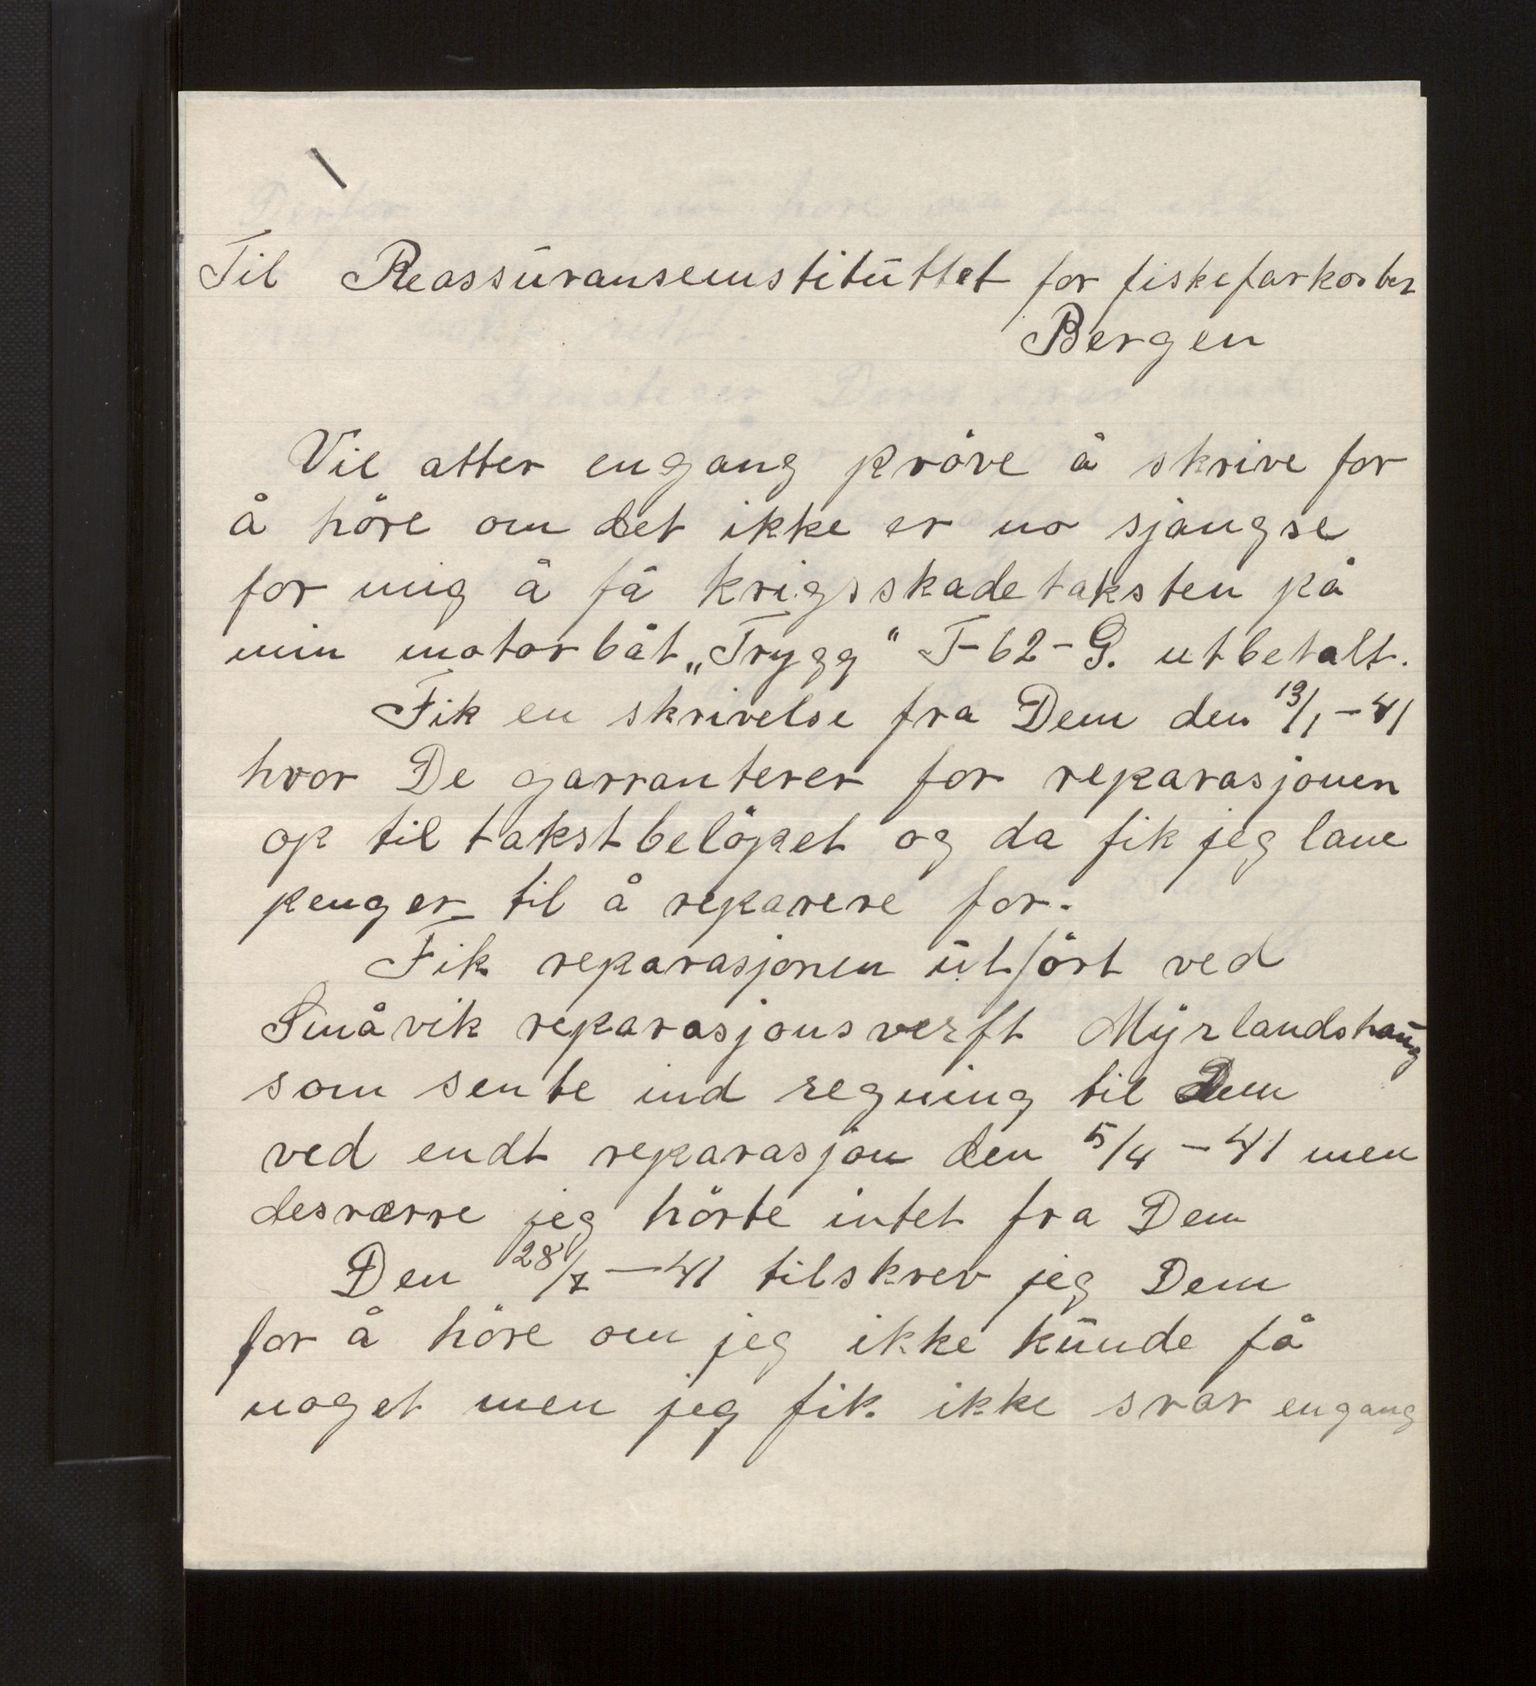 Til Reassuranseinstituttet for fiskefarkoster
Bergen
Vil atter engang pröve å skrive for
å höre om det ikke er no sjangse
for mig å få krigsskadetaksten på
min motorbåt „Trygg" T-62-G. utbetalt.
Fik en skrivelse fra Dem den 13/1-41
hvor De garranterer for reparasjonen
op til takstbelöpet og da fik jeg lane
penger til å reparere for.
Fik reparasjonen utfört ved
Småvik reparasjonsverft Myrlandshaug
som sente ind regning til Dem
ved endt reparasjon den 5/4-41 men
desværre jeg hörte intet fra Dem
Den 28/7-41 tilskrev jeg Dem
for å höre om jeg ikke kunde få
noget men jeg fik ikke svar engang